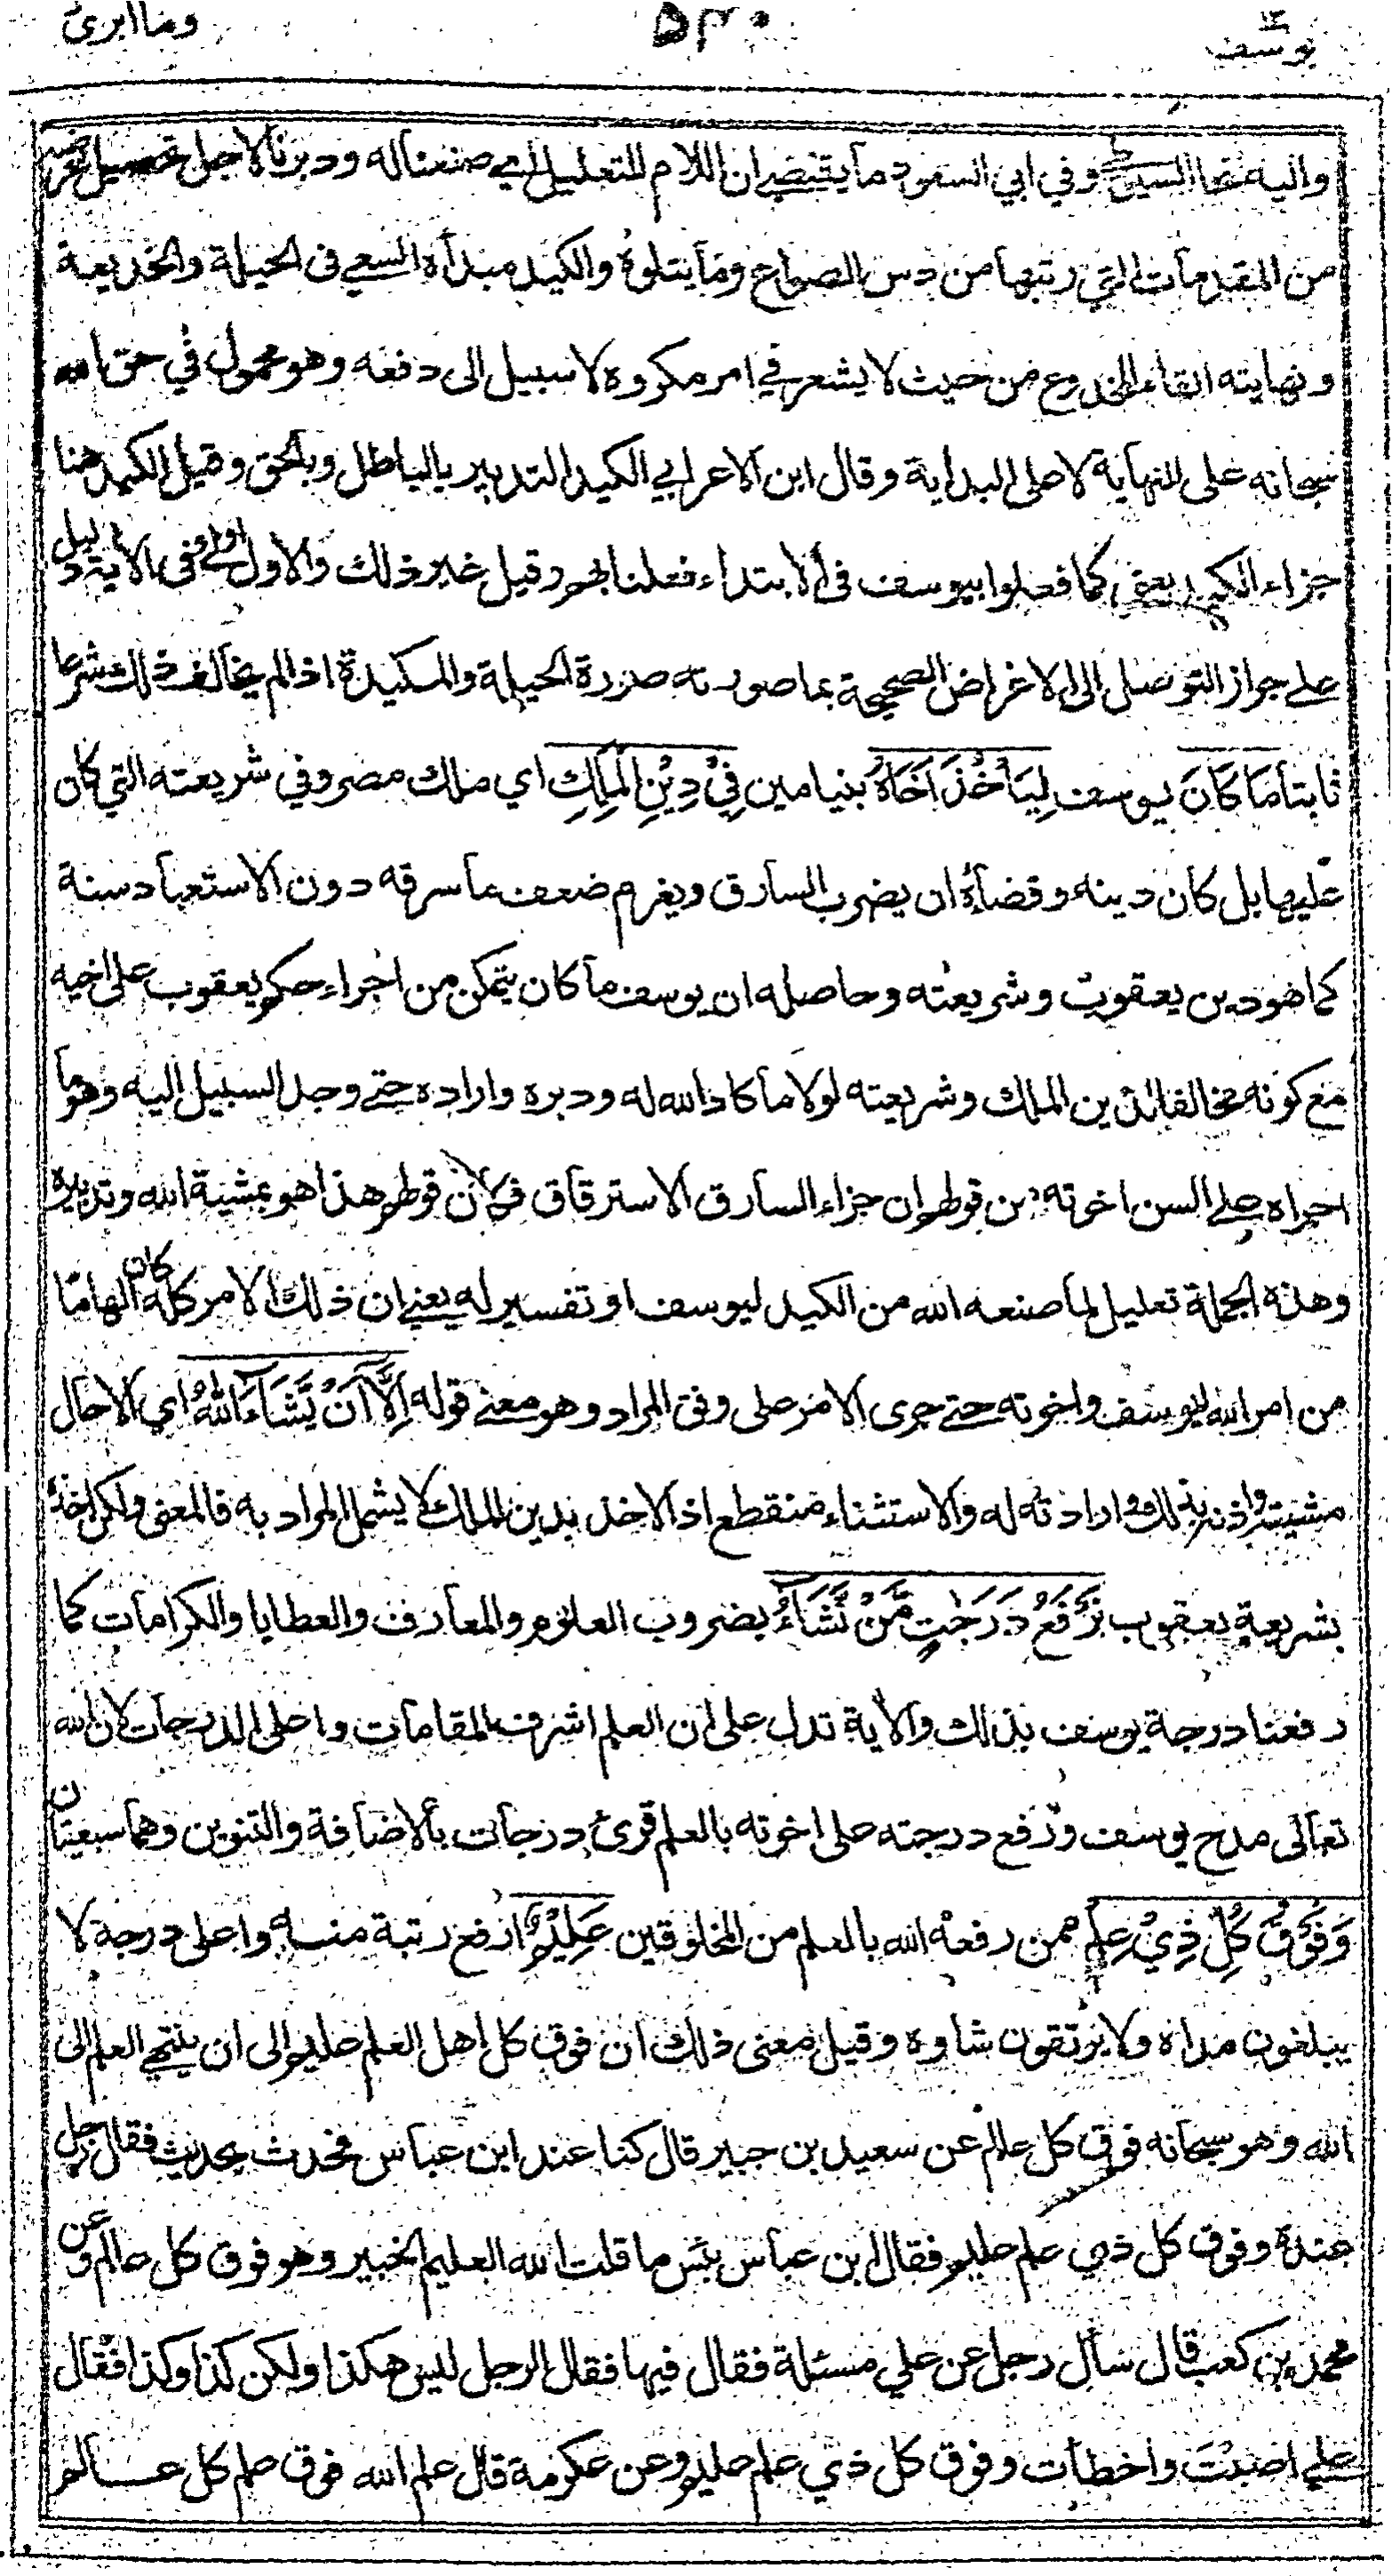 يوسف ١٢
٥٣٠
وما ابرئ
واليه نحا السيوطي وفي ابي السعود ما يقتضي ان اللام للتعليل اي صنعنا له ودبرنا لاجل تحصيل غرضه
من المقدمات التي رتبها من دس الصواع وما يتلوه والكيد مبدأه السعي فى الحيلة والخديعة
ونهايته القاء المخدوع من حيث لا يشعر في امر مكروه لا سبيل الى دفعه وهو محمول في حق الله
سبحانه على النهاية لا على البداية وقال ابن الاعرابي الكيد التدبير بالباطل وبالحق وقيل الكيد هنا
جزاء الكيد يعنى كما فعلوا بيوسف فى الابتداء فعلنا بهم وقيل غير ذلك والاول اولى وفى الآية دليل
على جواز التوصل الى الاغراض الصحيحة بما صورته صورة الحيلة والمكيدة اذا لم يخالف ذلك شرعا
ثابتا مَا كَانَ يوسف لِيَأْخُذَ اَخَاهُ بنيامين فِيْ دِيْنِ الْمَلِكِ اي ملك مصر وفي شريعته التي كان
عليها بل كان دينه وقضاؤه ان يضرب السارق ويغرم ضعف ما سرقه دون الاستعباد سنة
كما هو دين يعقوب وشريعته وحاصله ان يوسف ما كان يتمكن من اجراء حكم يعقوب على اخيه
مع كونه مخالفا لدين الملك وشريعته لولا ما كاد الله له ودبره واراده حتى وجد السبيل اليه وهو ما
اجراه على السن اخوته من قولهم ان جزاء السارق الاسترقاق فكان قولهم هذا هو بمشية الله وتدبيره
وهذه الجملة تعليل لما صنعه الله من الكيد ليوسف او تفسير له يعني ان ذلك الامر كله كان الهاما
من امر الله ليوسف واخوته حتى جرى الامر على وفق المراد وهو معنى قوله اِلَّا اَنْ يَّشَاءَ اللّٰهُ اي الا حال
مشيته واذنه بذلك وارادته له والاستثناء منقطع اذ الاخذ بدين الملك لا يشمل المراد به فالمعنى ولكن اخذه
بشريعة يعقوب نَرْفَعُ دَرَجٰتٍ مَّنْ نَّشَاءُ بضروب العلوم والمعارف والعطايا والكرامات كما
رفعنا درجة يوسف بذلك والآية تدل على ان العلم اشرف المقامات واعلى الدرجات لان الله
تعالى مدح يوسف ورفع درجته على اخوته بالعلم قرئ درجات بالاضافة والتنوين وهما سبعيتان
وَفَوْقَ كُلِّ ذِيْ عِلْمٍ ممن رفعه الله بالعلم من المخلوقين عَلِيْمٌ ارفع رتبة منه واعلى درجة لا
يبلغون مداه ولا يرتقون شاوه وقيل معنى ذلك ان فوق كل اهل العلم عليم الى ان ينتهي العلم الى
الله وهو سبحانه فوق كل عالم عن سعيد بن جبير قال كنا عند ابن عباس فحدث بحديث فقال رجل
عنده وفوق كل ذي علم عليم فقال ابن عباس بئس ما قلت الله العليم الخبير وهو فوق كل عالم وعن
محمد بن كعب قال سأل رجل عن علي مسئلة فقال فيها فقال الرجل ليس هكذا ولكن كذا وكذا فقال
علي اصبت واخطأت وفوق كل ذي علم عليم وعن عكرمة قال علم الله فوق علم كل عالم